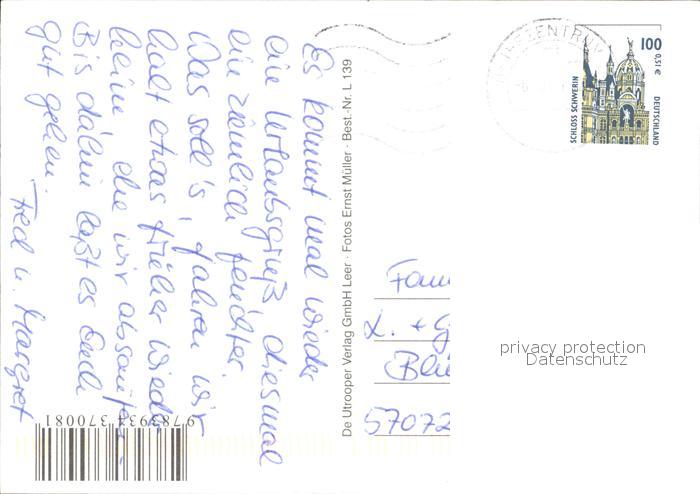 Es kommt mal wieder
ein Urlaubsgruß diesmal
ein ziemlich feuchter.
Was soll's, fahren wir
halt etwas früher wieder
heim, ehe wir absaufen.
Bis dahin laßt es Euch
gut gehen.
Fred u. Margret
9 783934 370081
De Utrooper Verlag GmbH Leer · Fotos Ernst Müller · Best.-Nr. L 139
100
0,51 €
SCHLOSS SCHWERIN
DEUTSCHLAND
ZENTRUM
Fam
L. + G
Blü
57072
privacy protection
Datenschutz